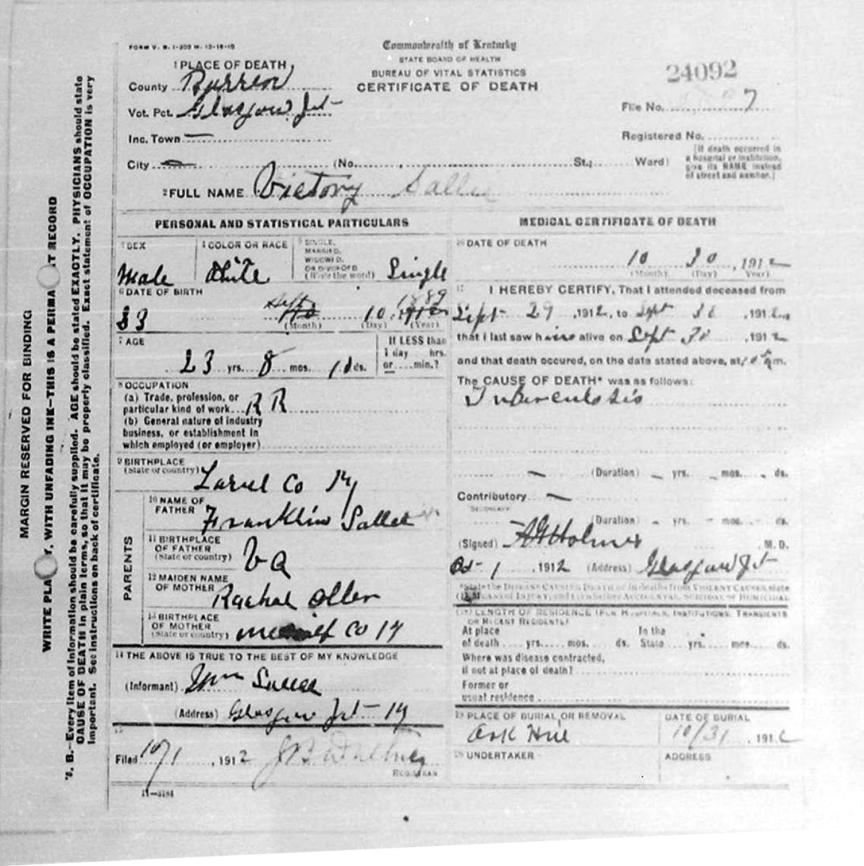 FORM V. S. 1-200 M. 12-18-10
Commonwealth of Kentucky
STATE BOARD OF HEALTH
BUREAU OF VITAL STATISTICS
CERTIFICATE OF DEATH
24092
1 PLACE OF DEATH
County Barren
Vot. Pct. Glasgow Jct
Inc. Town —
City — (No. St.; Ward)
File No. 7
Registered No.
(If death occurred in a hospital or institution, give its NAME instead of street and number.)
2 FULL NAME Victory Sallee
PERSONAL AND STATISTICAL PARTICULARS
3 SEX
Male
4 COLOR OR RACE
White
5 SINGLE, MARRIED, WIDOWED, OR DIVORCED (Write the word)
Single
6 DATE OF BIRTH
23 10 1889
(Month) (Day) (Year)
7 AGE
23 yrs. 8 mos. ds.
If LESS than 1 day hrs. or min.?
8 OCCUPATION
(a) Trade, profession, or particular kind of work R R
(b) General nature of industry business, or establishment in which employed (or employer)
9 BIRTHPLACE
(State or country)
Larrel Co Ky
PARENTS
10 NAME OF FATHER
Franklin Sallee
11 BIRTHPLACE OF FATHER (State or country)
Va
12 MAIDEN NAME OF MOTHER
Rachel
13 BIRTHPLACE OF MOTHER (State or country)
Co Ky
14 THE ABOVE IS TRUE TO THE BEST OF MY KNOWLEDGE
(Informant) Wm Sallee
(Address) Glasgow Jct Ky
15
Filed 10/1, 1912
REGISTRAR
11-3184
MEDICAL CERTIFICATE OF DEATH
16 DATE OF DEATH
10 30, 1912
(Month) (Day) (Year)
17 I HEREBY CERTIFY, That I attended deceased from
Sept 29, 1912, to Sept 30 1912
that I last saw him alive on Sept 30 1912
and that death occured, on the date stated above, at m.
The CAUSE OF DEATH* was as follows:
Tuberculosis
— (Duration) — yrs. — mos. — ds.
Contributory —
SECONDARY
(Duration) yrs. mos. ds.
(Signed) A H Holmes M. D.
Oct 1 1912 (Address) Glasgow Jct
*State the DISEASE CAUSING DEATH or in deaths from VIOLENT CAUSES, state (1) MEANS OF INJURY; and (2) whether ACCIDENTAL, SUICIDAL OR HOMICIDAL
18 LENGTH OF RESIDENCE (FOR HOSPITALS, INSTITUTIONS, TRANSIENTS OR RECENT RESIDENTS)
At place of death yrs. mos. ds. In the State yrs. mos. ds.
Where was disease contracted, if not at place of death?
Former or usual residence
19 PLACE OF BURIAL OR REMOVAL
Oak Hill
DATE OF BURIAL
10/31, 1912
20 UNDERTAKER
ADDRESS
MARGIN RESERVED FOR BINDING
WRITE PLA Y, WITH UNFADING INK—THIS IS A PERMA T RECORD
N. B.—Every item of information should be carefully supplied. AGE should be stated EXACTLY. PHYSICIANS should state
CAUSE OF DEATH in plain terms, so that it may be properly classified. Exact statement of OCCUPATION is very
important. See instructions on back of certificate.